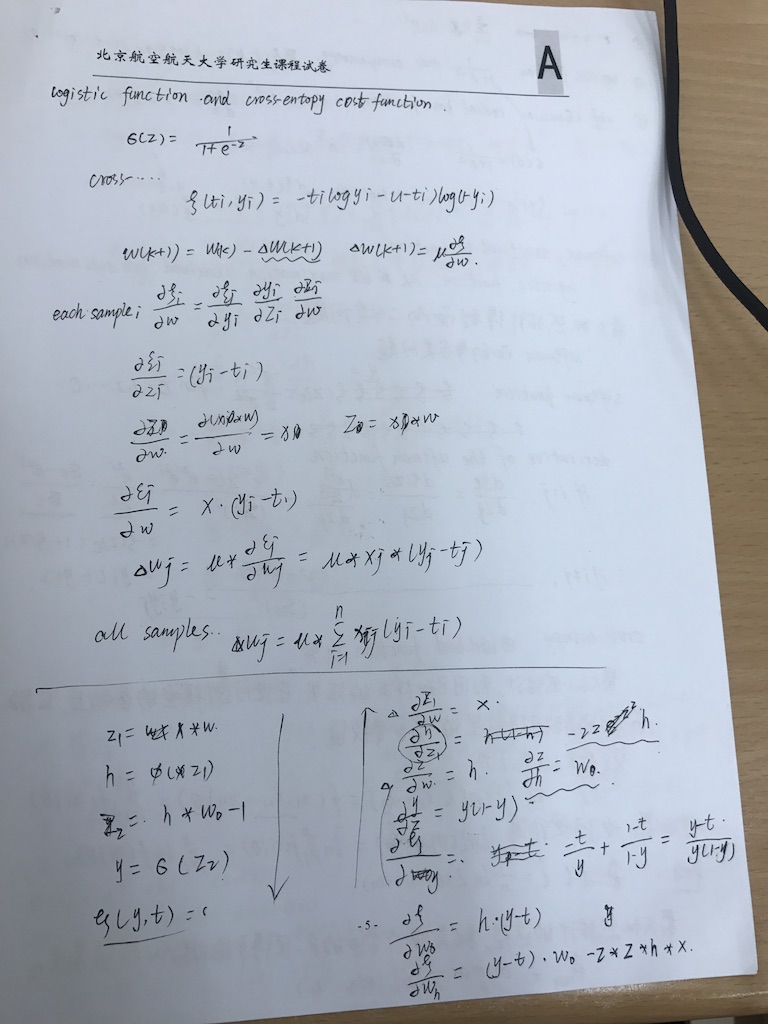 北京航空航天大学研究生课程试卷 A
logistic function and cross-entopy cost function.
σ(z) = 1 / (1+e^-z)
cross.....
ξ(ti, yi) = -ti log yi - (1-ti) log(1-yi)
w(k+1) = w(k) - Δw(k+1) Δw(k+1) = μ ∂ξ/∂w.
each sample i ∂ξi/∂w = ∂ξi/∂yi ∂yi/∂zi ∂zi/∂w
∂ξi/∂zi = (yi - ti)
∂z/∂w = ∂(x*w)/∂w = x z = x*w
∂ξi/∂w = x·(yi - ti)
Δwj = μ * ∂ξj/∂wj = μ * xj * (yj - tj)
all samples.. Δwj = μ * Σ_{i=1}^{n} xij (yi - ti)
z1 = x * w.
h = φ(z1)
z2 = h * wo - 1
y = σ(z2)
ξ(y,t) =
∂z1/∂w = x.
∂h/∂z1 = -2z h.
∂z/∂w = h. ∂z/∂h = wo.
∂y/∂z = y(1-y)
∂ξ/∂y = -t/y + (1-t)/(1-y) = (y-t)/(y(1-y))
-5- ∂ξ/∂wo = h·(y-t)
∂ξ/∂wh = (y-t)·wo -2*z*h*x.